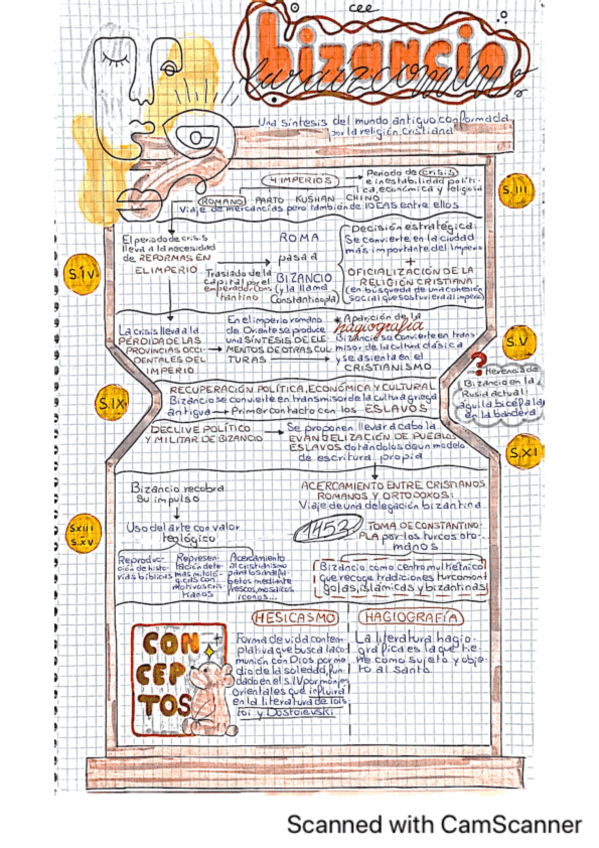 cee
bizancio
la raíz común
Una síntesis del mundo antiguo conformada
por la religión cristiana
4 IMPERIOS → Periodo de crisis
e inestabilidad políti-
ca, económica y religiosa
ROMANO PARTO KUSHAN CHINO
Viaje de mercancías pero también de IDEAS entre ellos
S.III
El periodo de crisis
lleva a la necesidad
de REFORMAS EN
EL IMPERIO
Traslado de la
capital por el
emperador Cons
tantino
ROMA
pasa a
BIZANCIO
(y la llama
Constantinopla)
Decisión estratégica:
Se convierte en la ciudad
más importante del Imperio
+
OFICIALIZACIÓN DE LA
RELIGIÓN CRISTIANA
(en búsqueda de una cohesión
social que sostuviera al imperio)
S.IV
La crisis lleva a la
PÉRDIDA DE LAS
PROVINCIAS OCCI-
DENTALES DEL
IMPERIO
En el imperio romano
de Oriente se produce
una SÍNTESIS DE ELE-
MENTOS DE OTRAS CUL-
TURAS
* Aparición de la
hagiografía
Bizancio se convierte en trans
misor de la cultura clásica
y se asienta en el
CRISTIANISMO
S.V
? Herencia de
Bizancio en la
Rusia actual:
águila bicéfala
en la bandera
S.IX
RECUPERACIÓN POLÍTICA, ECONÓMICA Y CULTURAL
Bizancio se convierte en transmisor de la cultura griega
antigua → Primer contacto con los ESLAVOS
DECLIVE POLÍTICO
Y MILITAR DE BIZANCIO
Se proponen llevar a cabo la
EVANGELIZACIÓN DE PUEBLOS
ESLAVOS dotándolos de un modelo
de escritura propia
S.XI
Bizancio recobra
su impulso
Uso del arte con valor
teológico
ACERCAMIENTO ENTRE CRISTIANOS
ROMANOS Y ORTODOXOS:
Viaje de una delegación bizantina
1453 TOMA DE CONSTANTINO-
PLA por los turcos oto-
manos
SXIII
S.XV
Reproduc-
ción de histo-
rias bíblicas
Represen-
tación de te-
mas
con
motivos cris-
tianos
Acercamiento
al cristianismo
para los analfa-
betos mediante
frescos, mosaicos
iconos...
Bizancio como centro multiétnico
que recoge tradiciones turcomon
golas, islámicas y bizantinas
CON
CEP
TOS
HESICASMO
Forma de vida contem-
plativa que busca la co-
munión con Dios por me
dio de la soledad, fun-
dado en el S.IV por monjes
orientales que influirá
en la literatura de Tols-
toi y Dostoievski
HAGIOGRAFÍA
La literatura hagio-
gráfica es la que tie-
ne como sujeto y obje-
to al santo.
Scanned with CamScanner